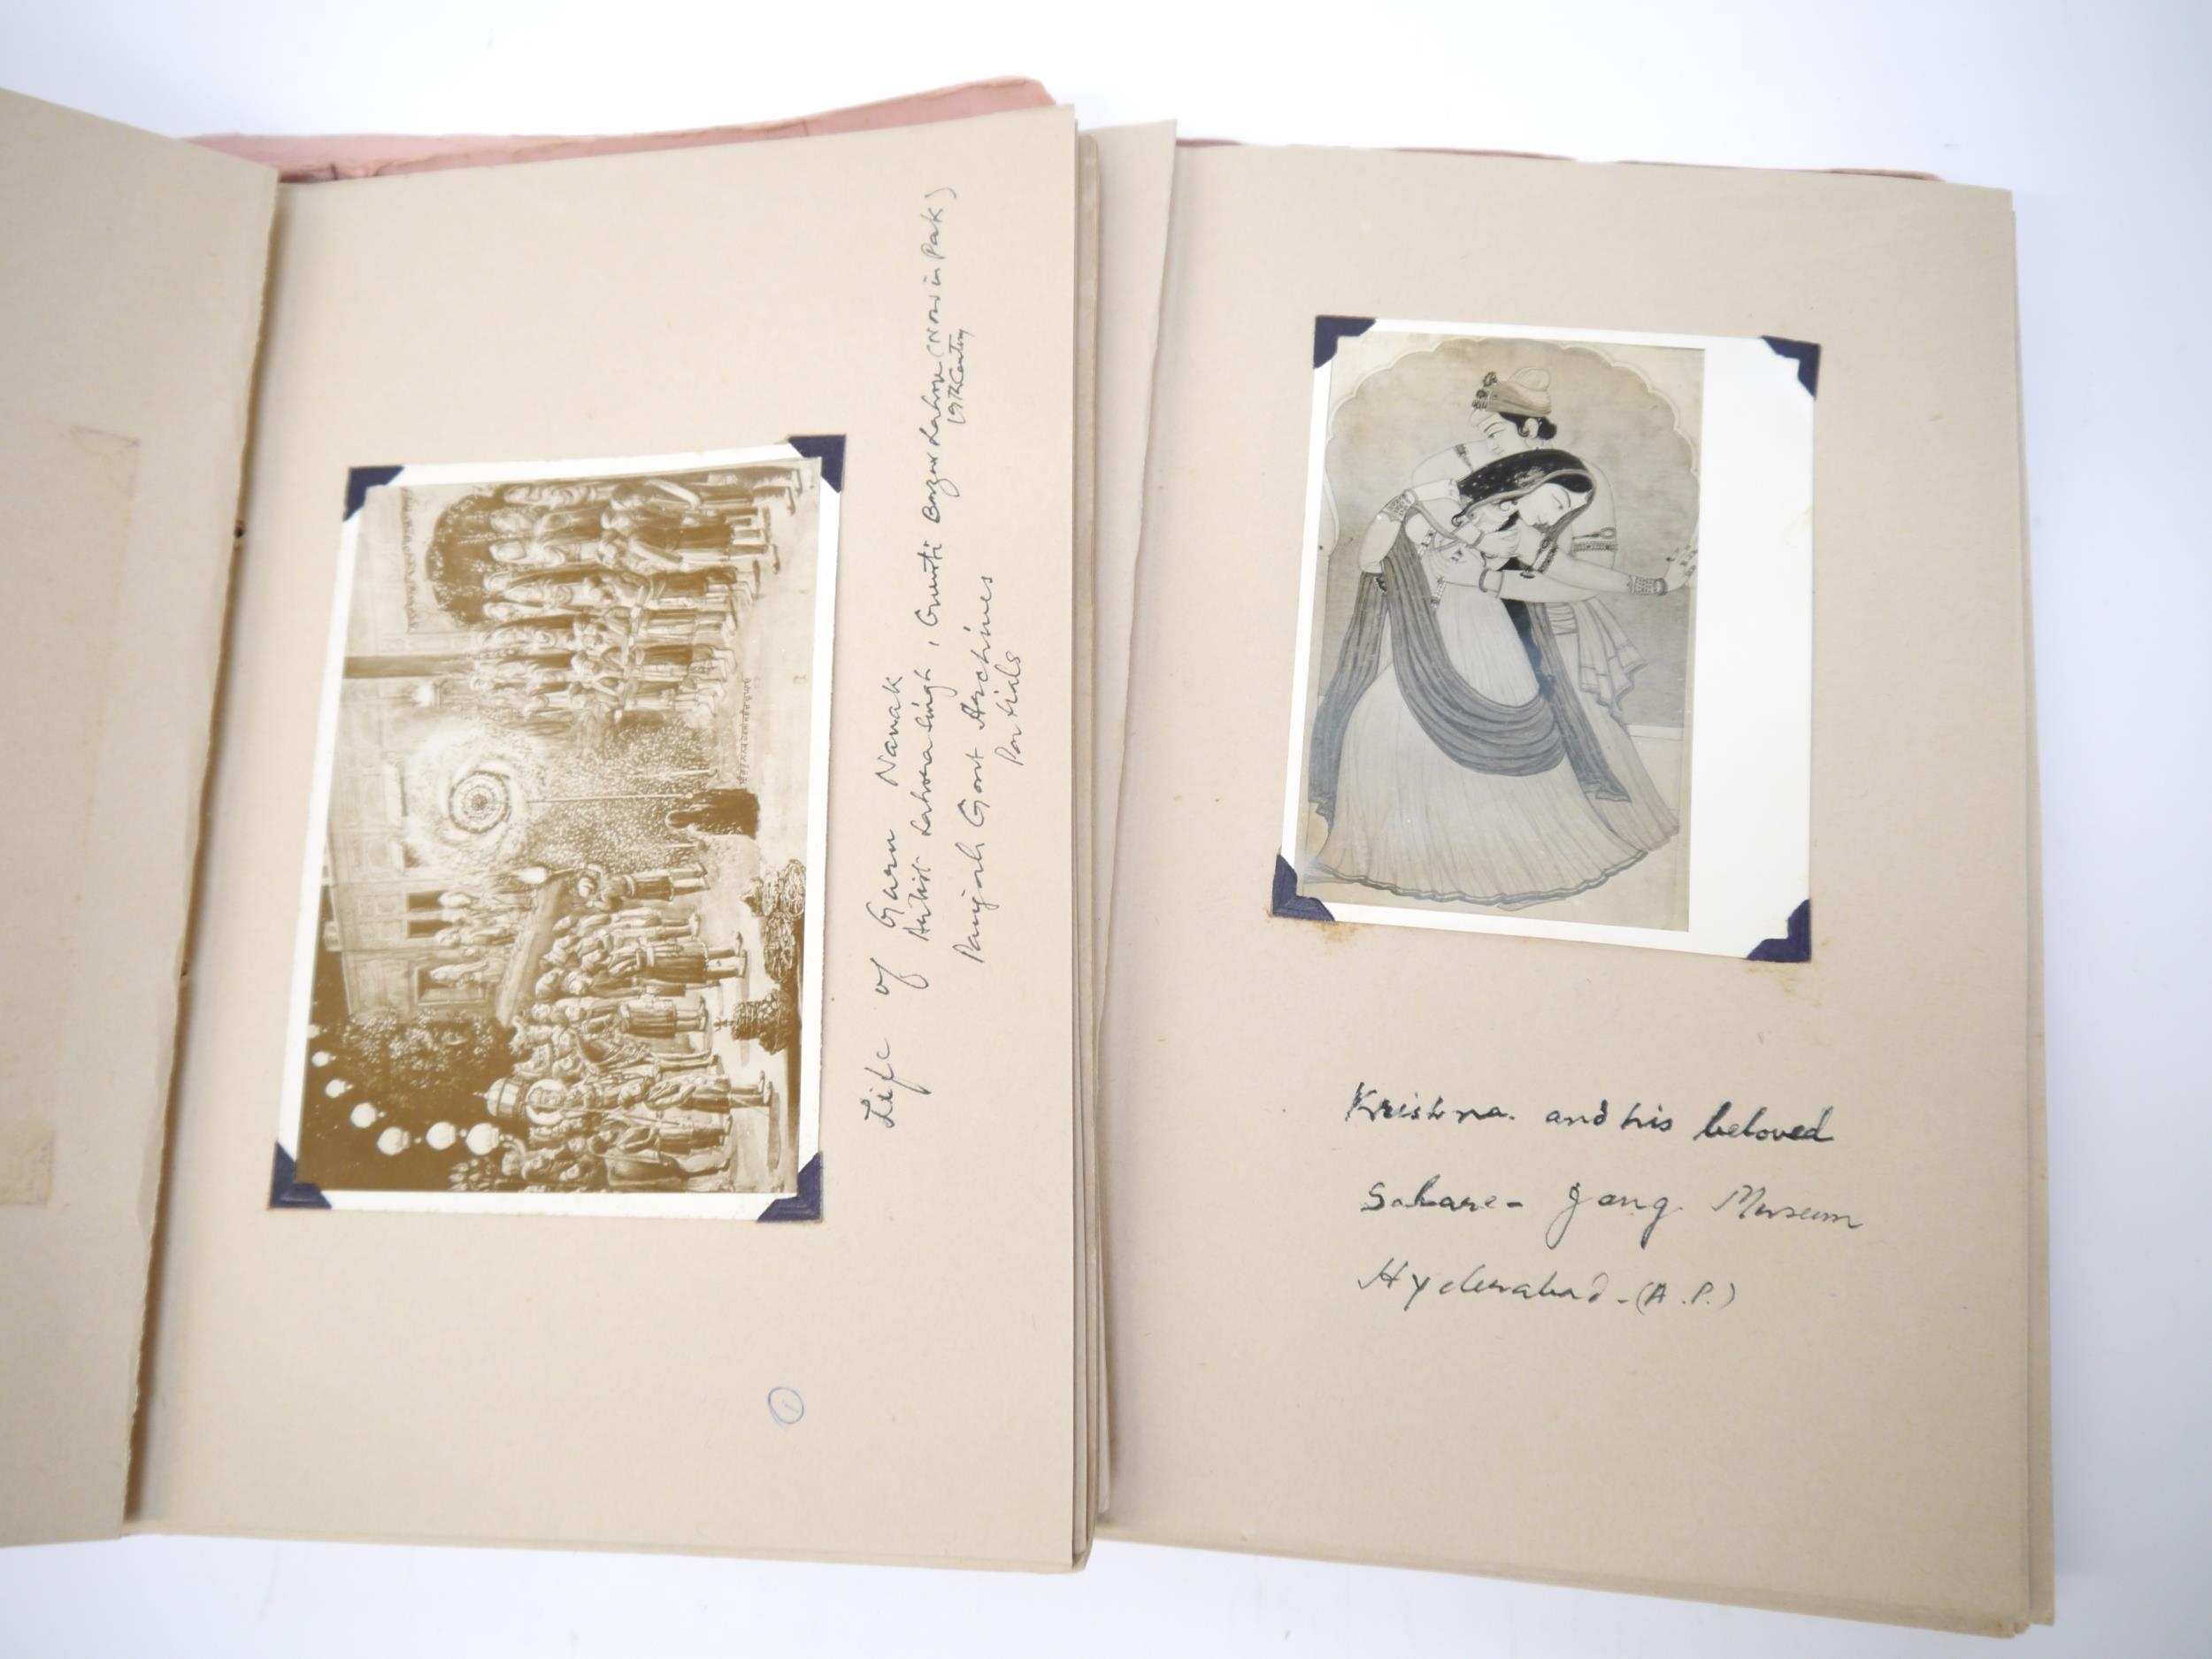 Life of Guru Nanak
Artist Lahora Singh, Gumti Bazar Lahore (Now in Pak)
19th Century
Punjab Govt Archives
Patiala
1
Krishna and his beloved
Salare- Jang Museum
Hyderabad - (A.P.)